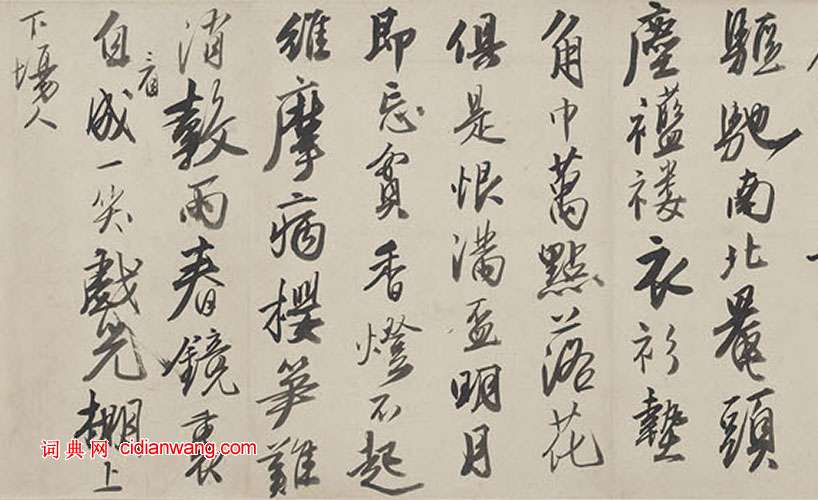 驅馳南北罨頭
塵襤褸衣衫墊
角巾萬點落花
俱是恨滿盃明月
即忘貧香燈不起
維摩病櫻笋難
消穀雨春鏡裏
自看成一笑戲兒棚上
下場人
词典网 cidianwang.com